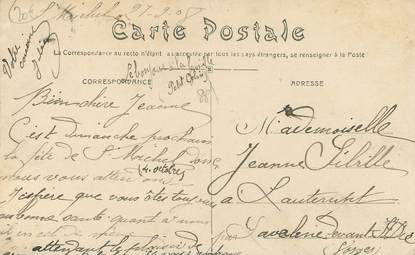 St Michel 27-9-08
Carte Postale
La Correspondance au recto n'étant pas acceptée par tous les pays étrangers, se renseigner à la Poste
CORRESPONDANCE
ADRESSE
Petite
à la famille
Petit
Bien chère Jeanne
C'est dimanche prochain
la fête de St Michel donc
nous vous attendons
(4 octobre)
J'espère que vous êtes toujours
en bonne santé quant à nous
attendant le plaisir de
Mademoiselle
Jeanne
à Lauterupt
par Laveline devant St Dié
Vosges